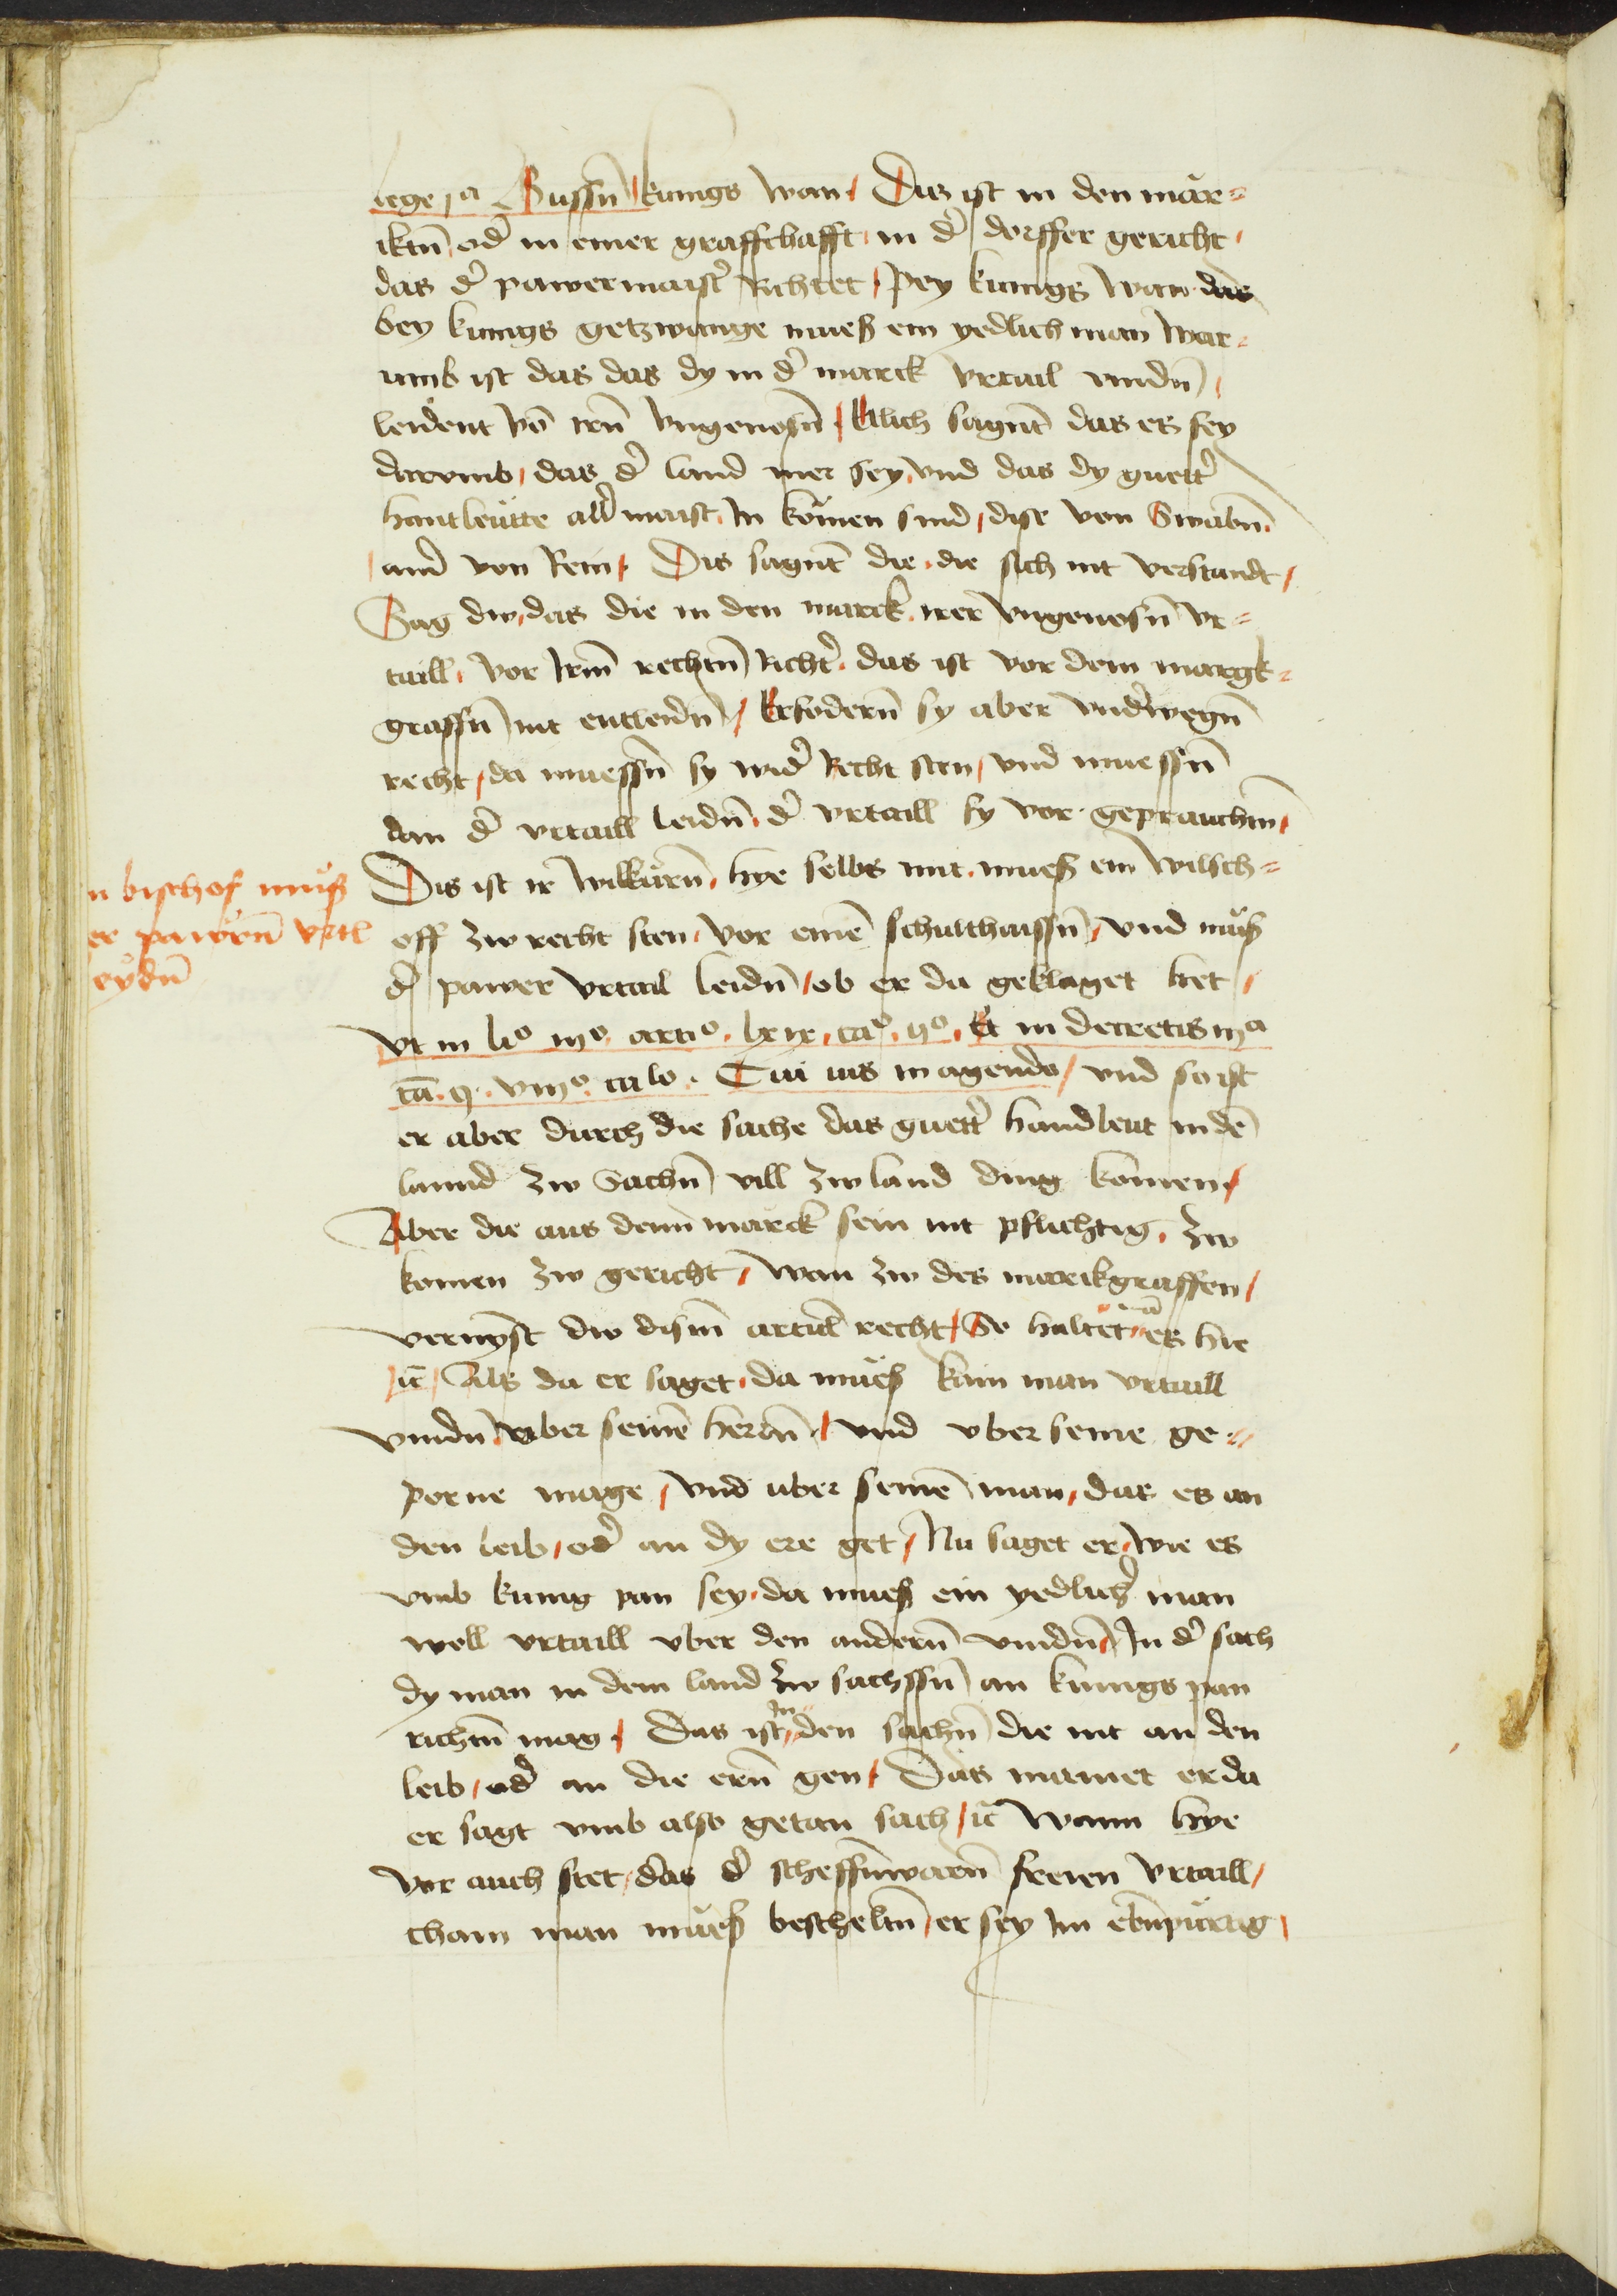 lege ja Bussn̄ kunigs wan Diz ist in den mär=
iktn̄ od̕ in einer graffschafft in d̕ dorffer gericht
das d̕ pawermaist̕ Richtet pey kunigs wan das
bey kunigs getzwange mueß ein yedlich man War=
umb ist das das dy in d̕ marck vrtail vindn̄
leident võ irn̄ vngenosn̄ Etlich sagnt̄ das es sey
darvmb das d̕ land mer sey vnd das dy guett̕
hantleütte all̕ maist In kömen sind dise von Swabn̄
and̕ von Rein Dis sagnt̄ die die sich nit verstandt
Sag dw das die in den marck irer vngenosn̄ vr=
taill vor irm̄ rechtn̄ Richt̕ das ist vor dem margk=
graffn̄ nit entleidn̄ Erfodern̄ sy aber vnd̕wegn̄
recht da muessn̄ sy wid̕ Recht sten vnd muessn̄
dan d̕ vrtaill leidn̄ d̕ vrtaill sy vor geprauchtn̄
Dis ist ir wilkürn̄ hye selbs mit mueß ein wisch=
off zw recht sten vor einē schulthaissn̄ vnd müß
d̕ pawer vrtail leidn̄ ob er da geklaget het
vt in lio iijo artio lxix cao ijo Et in decretis iija
cā q viijo calo Cui ius in agendo vnd so ist
er aber durch die sache das guett̕ handleut in dē
lannd zw Sachn̄ vill zw land ding komen
Aber die aus denn märck sein nit pflichtig zw
komen zw gericht wan zw des marckgraffen
vernyst dw dism̄ articl̄ recht So haltet es hie
ic̄ Als da er saget da müeß kain man vrtaill
vindn̄ vber seinē hern̄ vnd vber seine ge=
porne mage vnd uber seinē man das es an
den leib od̕ an dy ere get Nu saget er wie es
vmb kunig pan sey da mueß ein yedlich̕ man
woll vrtaill vber den andern̄ vindn̄ In d̕ sach
dy man in dem land zw sachssn̄ an kunigs pan
richtn̄ mag Das ist in den sachn̄ die nit an den
leib od̕ an die ern̄ gen Das mainet er da
er sagt vmb also getan sach ic̄ wann hye
vor auch stet das d̕ scheffn̄warn̄ freien vrtaill
cham man müeß bescheltn̄ er sey Im ebn̄pürtig
n bischof müß
er pawrn̄ vrtl
eydn̄